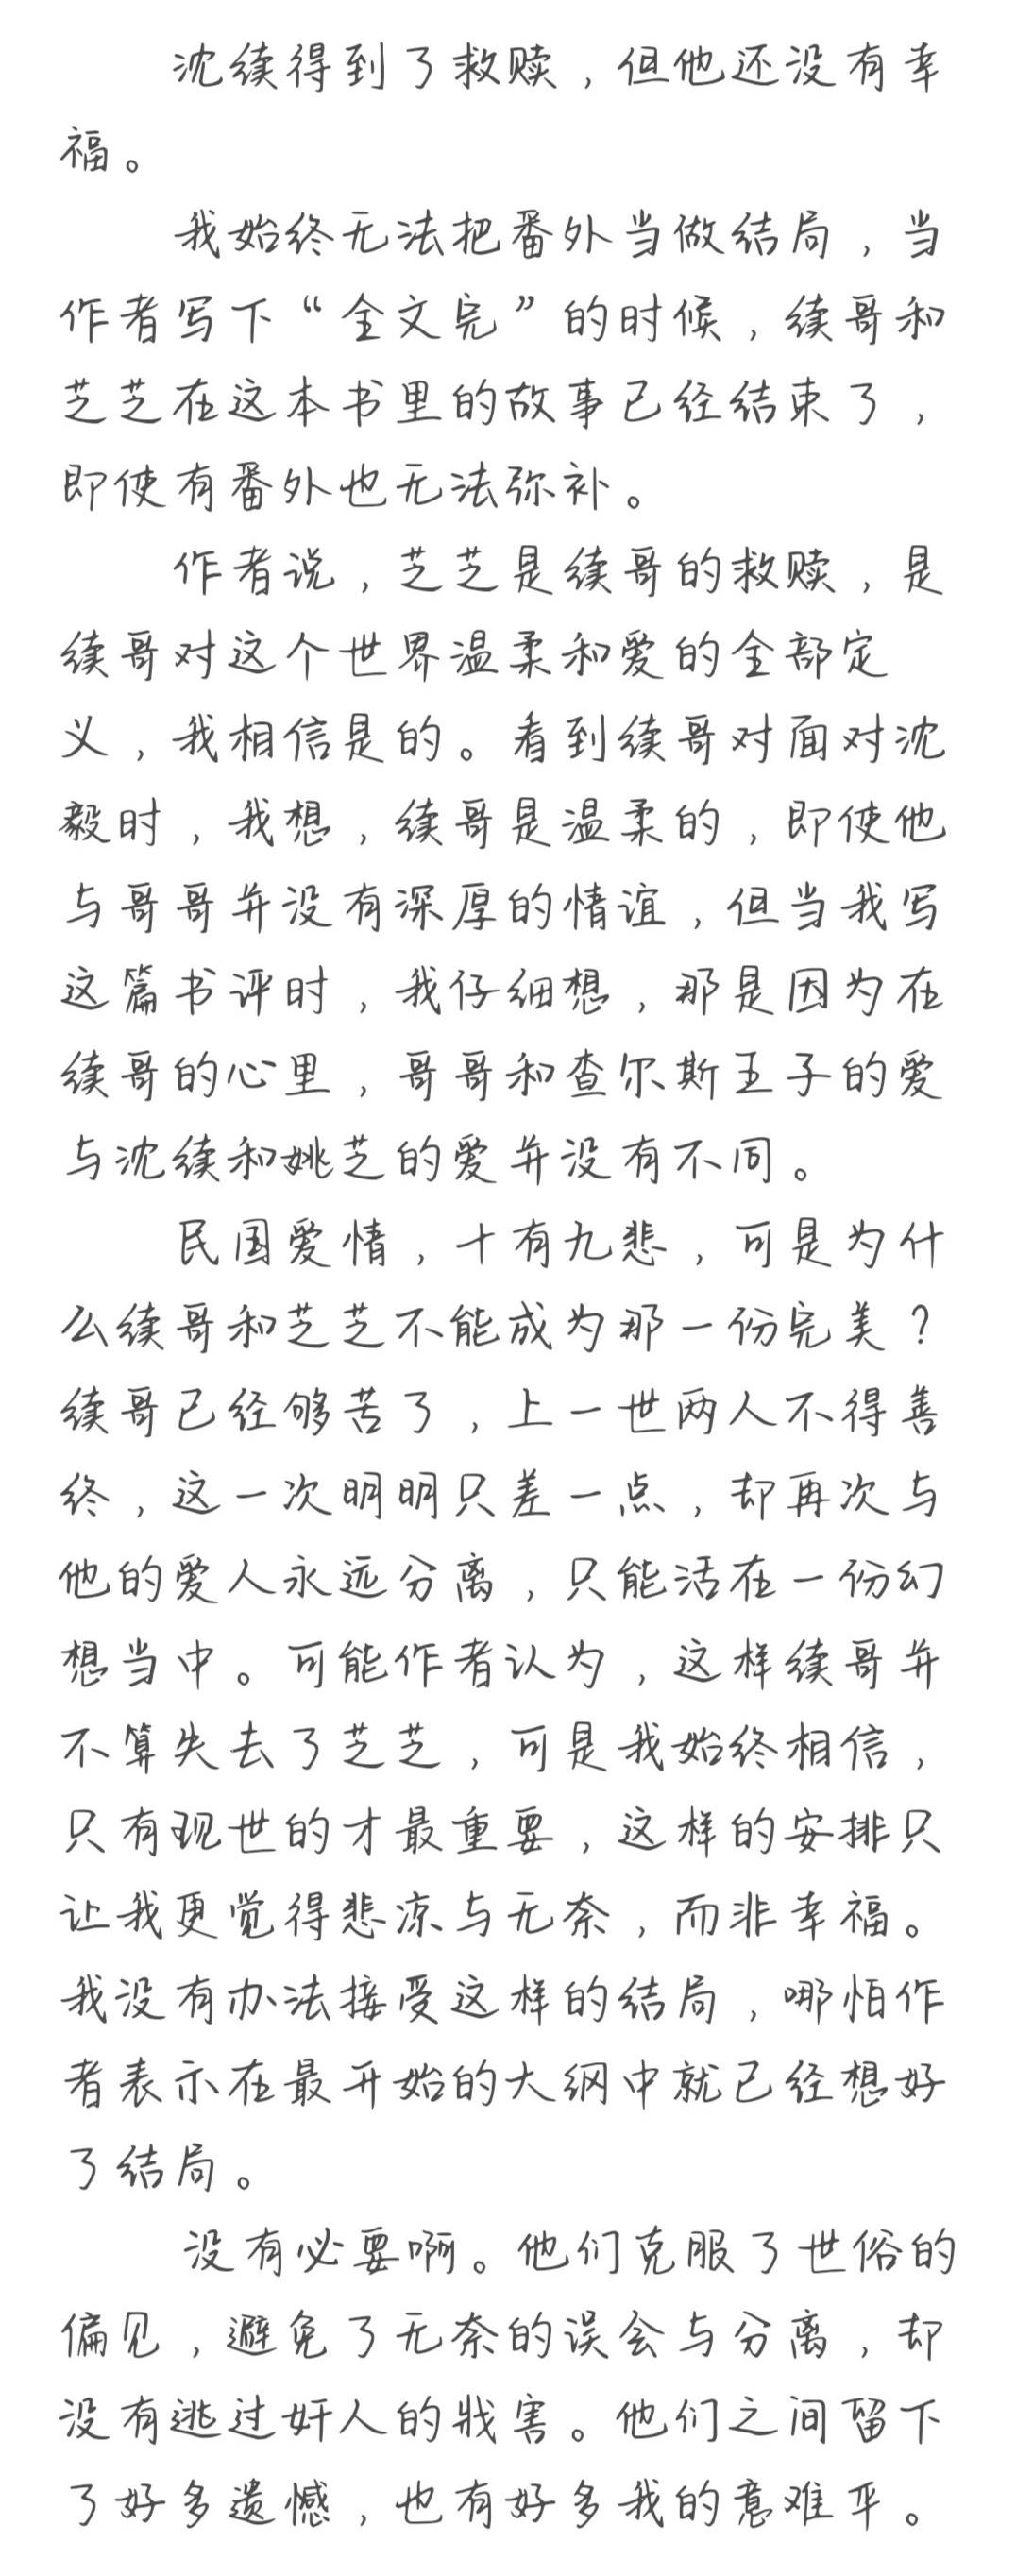 沈续得到了救赎，但他还没有幸
福。
我始终无法把番外当做结局，当
作者写下“全文完”的时候，续哥和
芝芝在这本书里的故事已经结束了，
即使有番外也无法弥补。
作者说，芝芝是续哥的救赎，是
续哥对这个世界温柔和爱的全部定
义，我相信是的。看到续哥对面对沈
毅时，我想，续哥是温柔的，即使他
与哥哥并没有深厚的情谊，但当我写
这篇书评时，我仔细想，那是因为在
续哥的心里，哥哥和查尔斯王子的爱
与沈续和姚芝的爱并没有不同。
民国爱情，十有九悲，可是为什
么续哥和芝芝不能成为那一份完美？
续哥已经够苦了，上一世两人不得善
终，这一次明明只差一点，却再次与
他的爱人永远分离，只能活在一份幻
想当中。可能作者认为，这样续哥并
不算失去了芝芝，可是我始终相信，
只有现世的才最重要，这样的安排只
让我更觉得悲凉与无奈，而非幸福。
我没有办法接受这样的结局，哪怕作
者表示在最开始的大纲中就已经想好
了结局。
没有必要啊。他们克服了世俗的
偏见，避免了无奈的误会与分离，却
没有逃过奸人的戕害。他们之间留下
了好多遗憾，也有好多我的意难平。